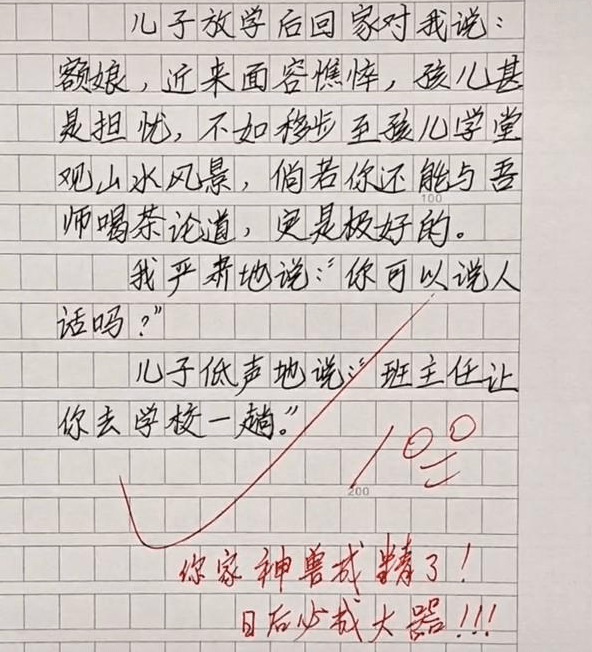 儿子放学后回家对我说：
额娘，近来面容憔悴，孩儿甚
是担忧，不如移步至孩儿学堂
观山水风景，倘若你还能与吾
100
师喝茶论道，更是极好的。
我严肃地说：“你可以说人
话吗？”
儿子低声地说：“班主任让
你去学校一趟。”
100
200
你家神兽成精了！
日后必成大器!!!